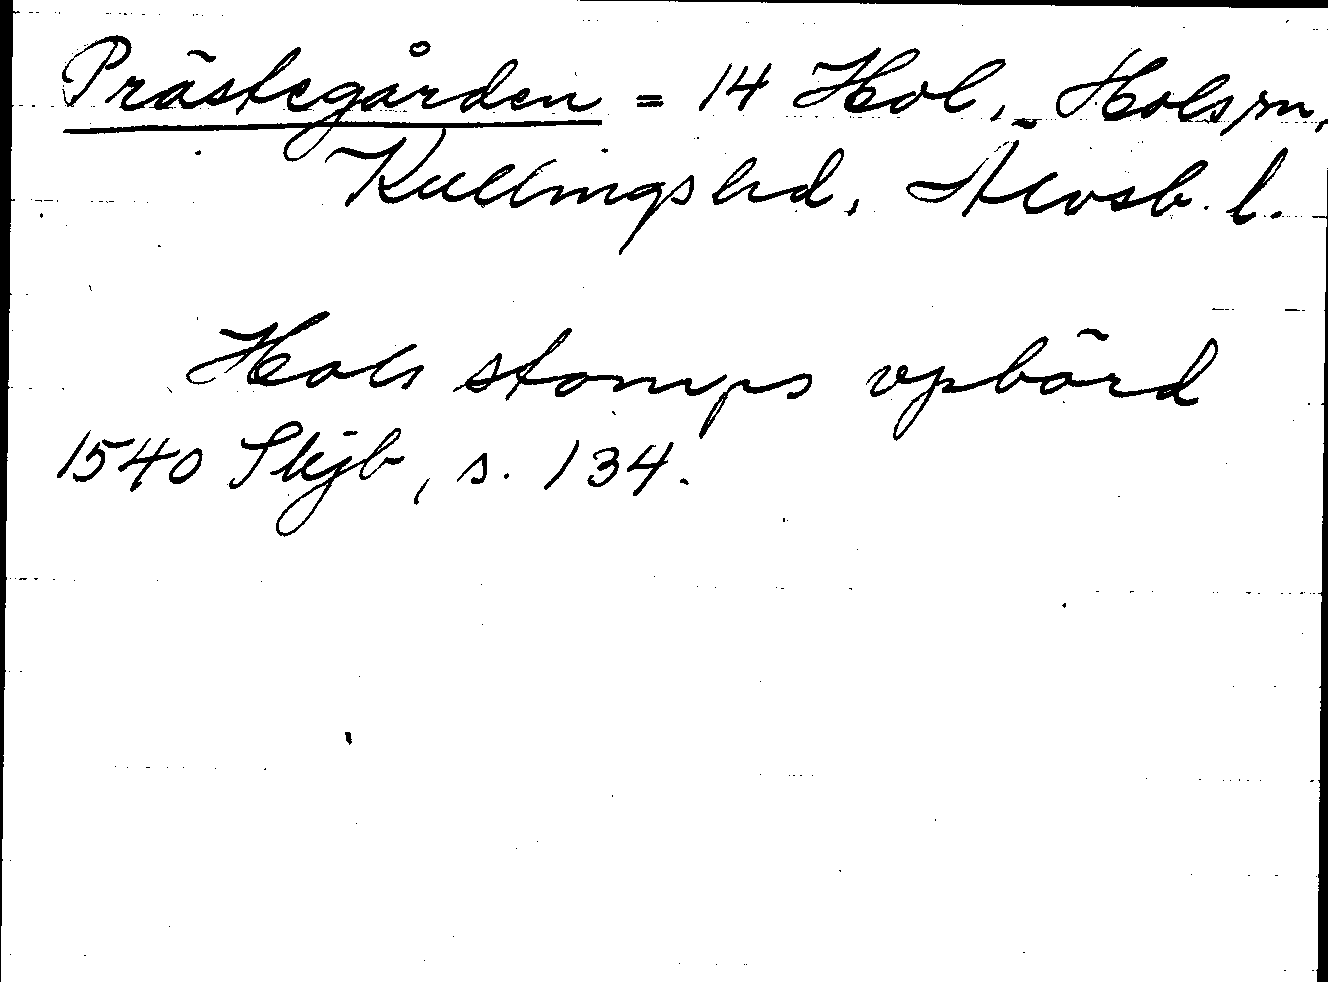 Prästegården = 14 Hol, Hols sn,
Kullings hd, Älvsb. l.
Hols stomps vpbörd
1540 Skjb, s. 134.